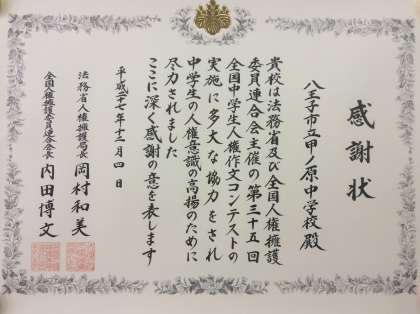 感謝状
八王子市立甲ノ原中学校殿
貴校は法務省及び全国人権擁護
委員連合会主催の第三十五回
全国中学生人権作文コンテストの
実施に多大な協力をされ
中学生の人権意識の高揚のために
尽力されました
ここに深く感謝の意を表します
平成二十七年十二月四日
法務省人権擁護局長 岡村和美
全国人権擁護委員連合会長 内田博文